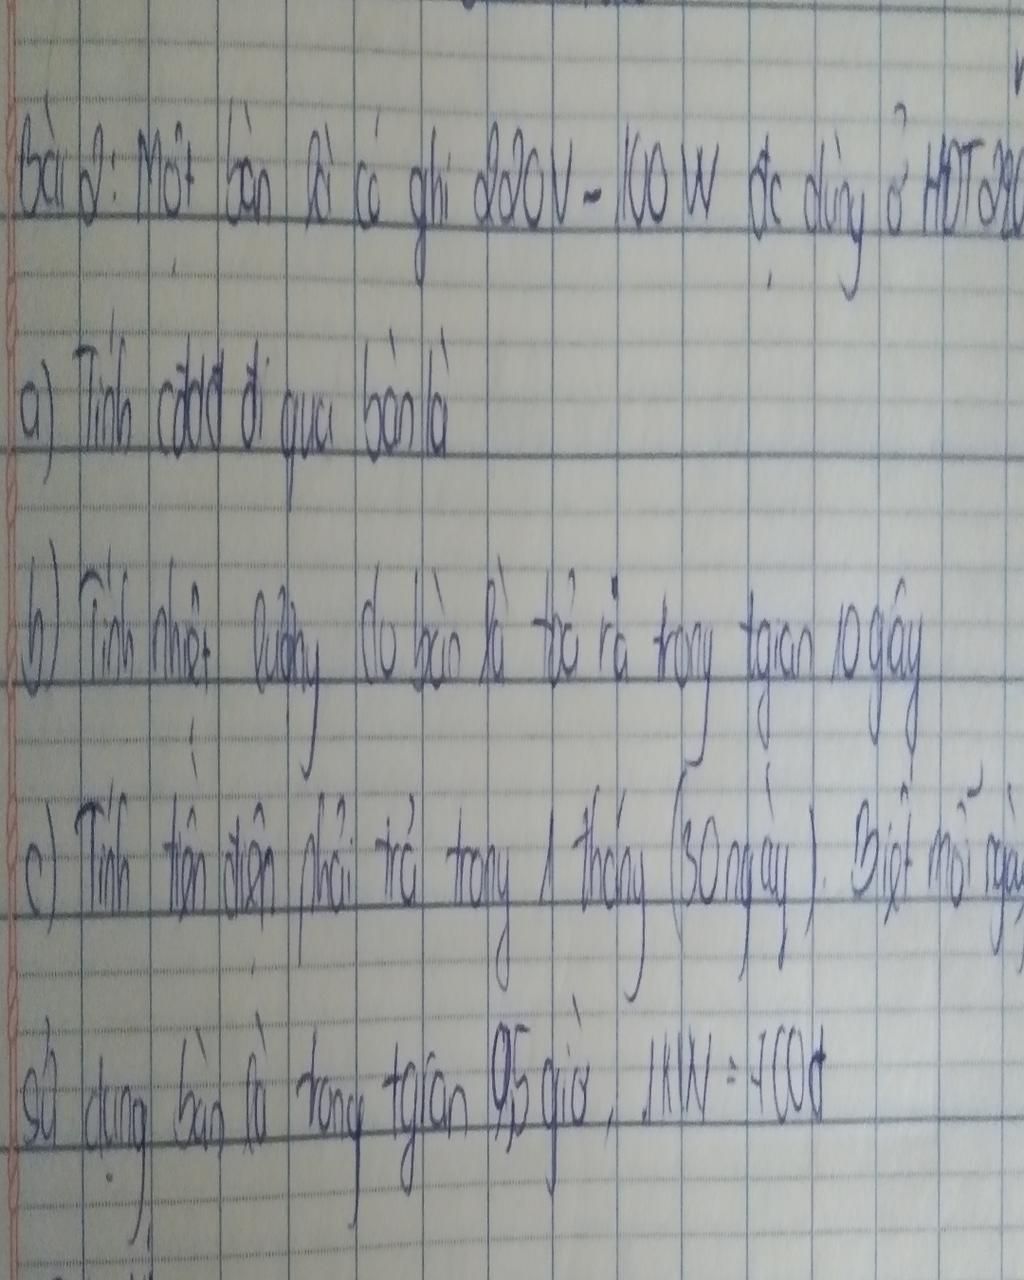 Bài 2: Một bàn là có ghi 220V - 100W đc dùng ở HĐT 220
a) Tính cđdđ đi qua bàn là
b) Tính nhiệt lượng do bàn là toả ra trong tgian 10 giây
c) Tính tiền điện phải trả trong 1 tháng (30 ngày). Biết mỗi ngày
sử dụng bàn là trong tgian 0,5 giờ, 1KW = 700đ